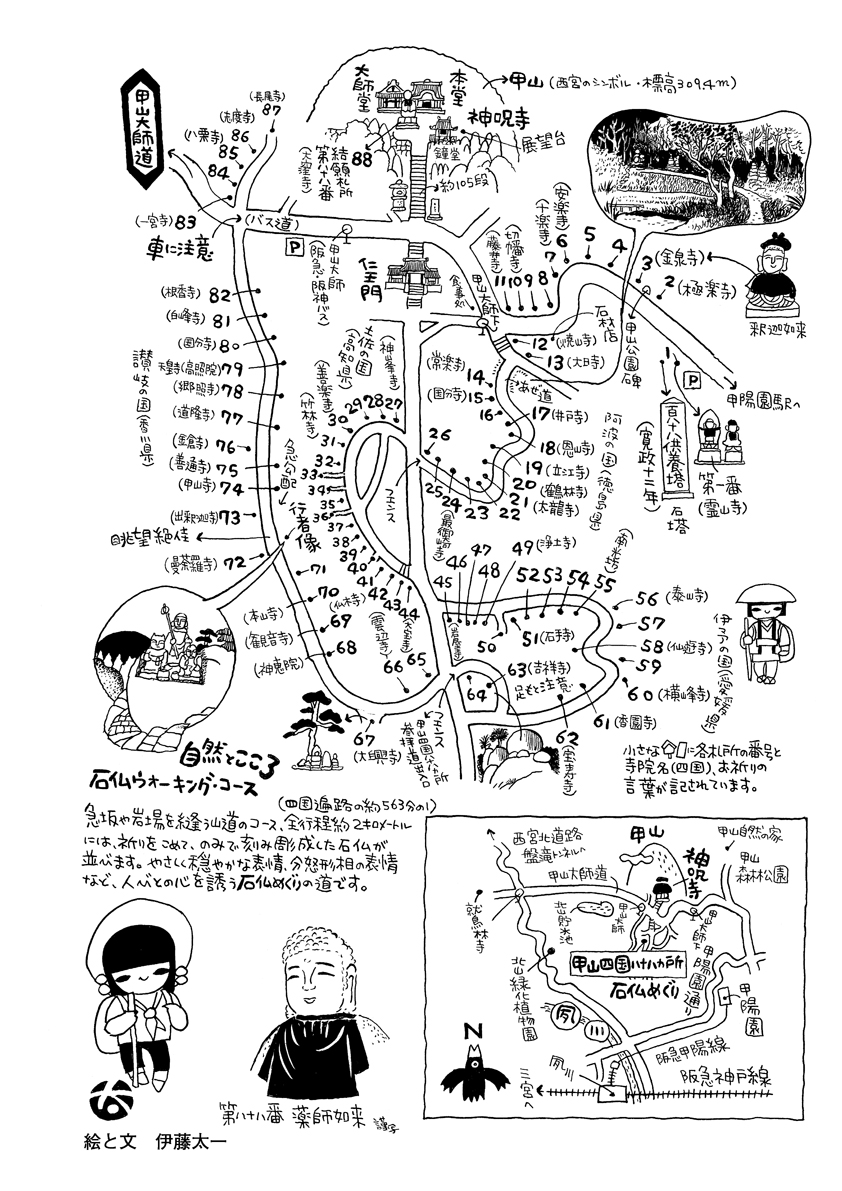 甲山大師道
(長尾寺)
87
(志度寺)
86
(八栗寺)
85
84
(一宮寺) 83
車に注意
(バス道)
P
大師堂
本堂
甲山 (西宮のシンボル・標高309.4m)
神呪寺
展望台
鐘堂
結願札所
第八十八番
(大窪寺)
88
約105段
甲山大師
(阪急・阪神バス)
仁王門
食事処
甲山大師下
(安楽寺)
(十楽寺)
(切幡寺)
(藤井寺)
11 10 9 8 7 6 5 4
3 (金泉寺)
2 (極楽寺)
1
釈迦如来
甲山公園碑
石材店
P
甲陽園駅へ
百八十八供養塔
(寛政十二年)
石塔
第一番
(霊山寺)
12 (焼山寺)
13 (大日寺)
(常楽寺)
14
(国分寺)
15
16
たあぜ道
17 (井戸寺)
18 (恩山寺)
19 (立江寺)
20 (鶴林寺)
21 (太龍寺)
22
23
24
25
26
阿波の国(徳島県)
(最御崎寺)
土佐の国
(高知県)
(神峯寺)
(善楽寺)
(竹林寺)
27
28
29
30
31
32
33
34
35
36
37
38
39
40
41
42
43
44
フェンス
(根香寺) 82
(白峰寺) 81
(国分寺) 80
天皇寺(高照院) 79
(郷照寺) 78
(道隆寺) 77
(金倉寺) 76
(善通寺) 75
(甲山寺) 74
(出釈迦寺) 73
眺望絶佳
(曼荼羅寺) 72
讃岐の国(香川県)
急勾配
行者像
71
70
(本山寺)
69
(観音寺)
68
(神恵院)
67
(大興寺)
(仏木寺)
(雲辺寺)
66
65
(大宝寺)
(岩屋寺)
45
46
47
48
49 (浄土寺)
50
51 (石手寺)
52 53 54 55
56 (泰山寺)
57
58 (仙遊寺)
59
60 (横峰寺)
61 (香園寺)
62
(宝寿寺)
63 (吉祥寺)
足もと注意
64
伊予の国(愛媛県)
フェンス
甲山四国八十八ヶ所
参拝道登り口
小さな に各札所の番号と
寺院名(四国)、お祈りの
言葉が記されています。
自然とこころ
石仏ウォーキング・コース
(四国遍路の約563分の1)
急坂や岩場を縫う山道のコース、全行程約2キロメートル
には、祈りをこめて、のみで刻み彫成した石仏が
並べます。やさしく穏やかな表情、分怒形相の表情
など、人びとの心を誘う石仏めぐりの道です。
西宮北道路
盤滝トンネルへ
甲山
甲山自然の家
甲山
森林公園
神呪寺
甲山大師道
鷲林寺
北山貯水池
甲山大師
甲山大師下
甲山四国八十八ヵ所
石仏めぐり
甲陽園通り
甲陽園
北山緑化植物園
夙川
N
夙川
阪急甲陽線
阪急神戸線
三宮へ
第八十八番 薬師如来
絵と文 伊藤太一